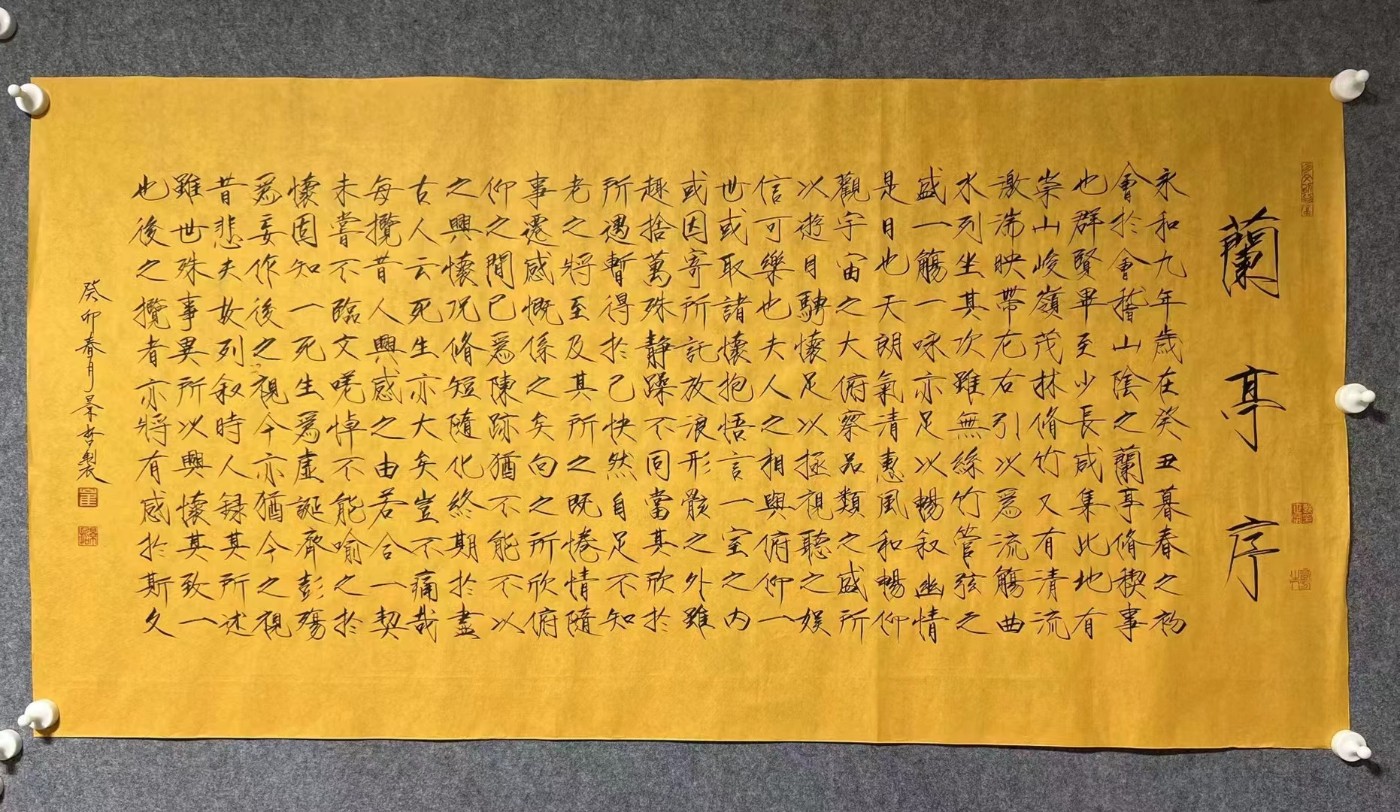 蘭亭序
永和九年歲在癸丑暮春之初
會於會稽山陰之蘭亭脩禊事
也群賢畢至少長咸集此地有
崇山峻嶺茂林脩竹又有清流
激湍映帶左右引以爲流觴曲
水列坐其次雖無絲竹管弦之
盛一觴一詠亦足以暢叙幽情
是日也天朗氣清惠風和暢仰
觀宇宙之大俯察品類之盛所
以遊目騁懷足以極視聽之娛
信可樂也夫人之相與俯仰一
世或取諸懷抱悟言一室之內
或因寄所託放浪形骸之外雖
趣捨萬殊静躁不同當其欣於
所遇暫得於己快然自足不知
老之將至及其所之既惓情隨
事遷感慨係之矣向之所欣俯
仰之間已爲陳跡猶不能不以
之興懷况脩短隨化終期於盡
古人云死生亦大矣豈不痛哉
每攬昔人興感之由若合一契
未嘗不臨文嗟悼不能喻之於
懷固知一死生爲虛誕齊彭殤
爲妄作後之視今亦猶今之視
昔悲夫故列叙時人録其所述
雖世殊事異所以興懷其致一
也後之攬者亦將有感於斯文
癸卯春月景製